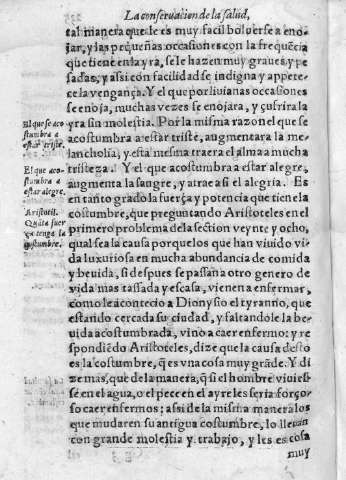 La conseruacion de la salud,
tal manera que le es muy facil boluerse a eno-
jar, y las pequeñas occasiones con la frequẽcia
que tiene en la yra, se le hazen muy graues, y pe
sadas, y assi con facilidad se indigna y appete-
ce la vengança. Y el que por liuianas occasiões
se enoja, muchas vezes se enojara, y çufrira la
yra sin molestia. Por la misma razon el que se
acostumbra a estar triste, augmentara la me-
lancholia, y esta mesma traera el alma a mucha
tristeza. Y el que acostumbra a estar alegre,
augmenta la sangre, y atrae assi el alegria. Es
en tanto grado la fuerça y potencia que tiene la
costumbre, que preguntando Aristoteles en el
primero problema de la section veynte y ocho,
qual sea la causa porque los que han viuido vi-
da luxuriosa en mucha abundancia de comida
y beuida, si despues se passan a otro genero de
vida mas tassada y escasa, vienen a enfermar,
como le acontecio a Dionysio el tyranno, que
estando cercada su ciudad, y faltandole la be-
uida acostumbrada, vino a caer enfermo: y re
spondiẽdo Aristoteles, dize que la causa desto
es la costumbre, q̃ es vna cosa muy grãde. Y di
ze mas, que de la manera, q̃ si el hombre viuies
se en el agua, o el pece en el ayre les seria forço-
so caer enfermos: assi de la misma manera los
que mudaren su antigua costumbre, lo lleuan
con grande molestia y trabajo, y les es cosa
muy
El que se aco
stumbra a
estar triste.
El que aco-
stumbra a
estar alegre.
Aristotil.
Quãta fuer
ça tenga la
costumbre.